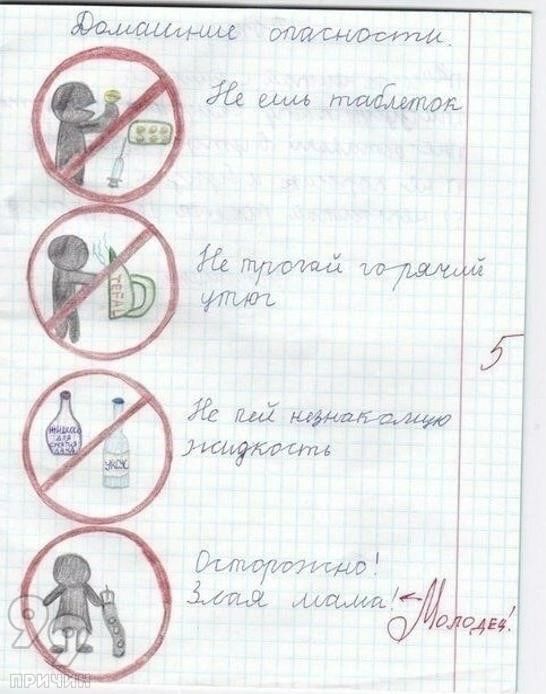 Домашние опасности.
Не ешь таблеток
Не трогай горячий
утюг
TEFAL
5
Не пей незнакомую
жидкость
ЖИДКОСТЬ
ДЛЯ
СНЯТИЯ
ЛАКА
УКСУС
Осторожно!
Злая мама!
Молодец!
ПРИЧИН